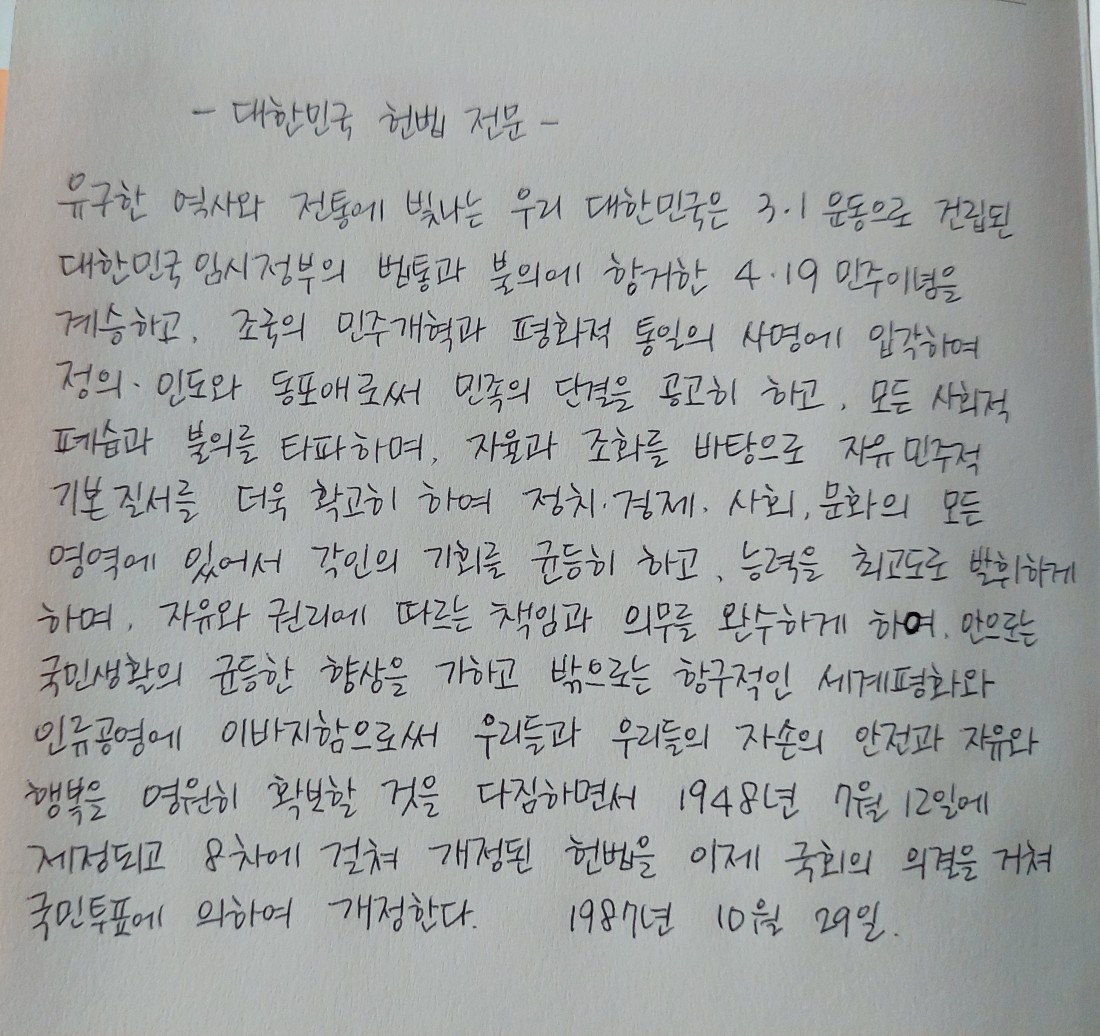 - 대한민국 헌법 전문 -
유구한 역사와 전통에 빛나는 우리 대한민국은 3·1 운동으로 건립된
대한민국 임시정부의 법통과 불의에 항거한 4·19 민주이념을
계승하고, 조국의 민주개혁과 평화적 통일의 사명에 입각하여
정의·인도와 동포애로써 민족의 단결을 공고히 하고, 모든 사회적
폐습과 불의를 타파하며, 자율과 조화를 바탕으로 자유 민주적
기본 질서를 더욱 확고히 하여 정치·경제·사회, 문화의 모든
영역에 있어서 각인의 기회를 균등히 하고, 능력을 최고도로 발휘하게
하며, 자유와 권리에 따르는 책임과 의무를 완수하게 하여, 안으로는
국민생활의 균등한 향상을 가하고 밖으로는 항구적인 세계평화와
인류공영에 이바지함으로써 우리들과 우리들의 자손의 안전과 자유와
행복을 영원히 확보할 것을 다짐하면서 1948년 7월 12일에
제정되고 8차에 걸쳐 개정된 헌법을 이제 국회의 의결을 거쳐
국민투표에 의하여 개정한다. 1987년 10월 29일.